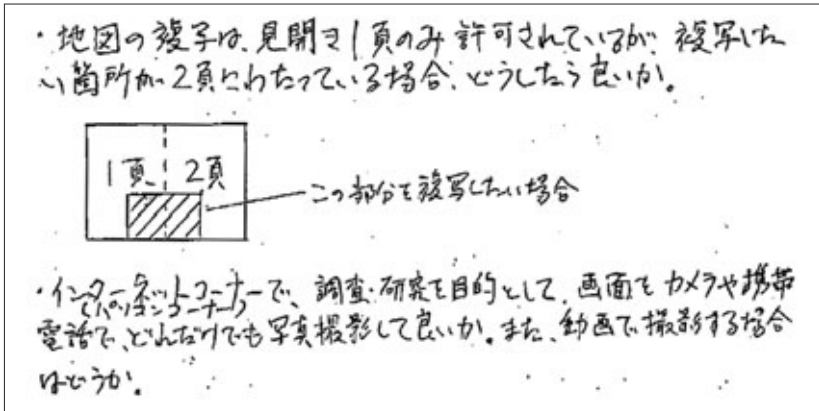 ・地図の複写は、見開き1頁のみ許可されているが、複写した
い箇所が2頁にわたっている場合、どうしたら良いか。
1頁 2頁
この部分を複写したい場合
・インターネットコーナーで、調査・研究を目的として、画面をカメラや携帯
(パソコンコーナー)
電話で、どれだけでも写真撮影して良いか。また、動画で撮影する場合
はどうか。